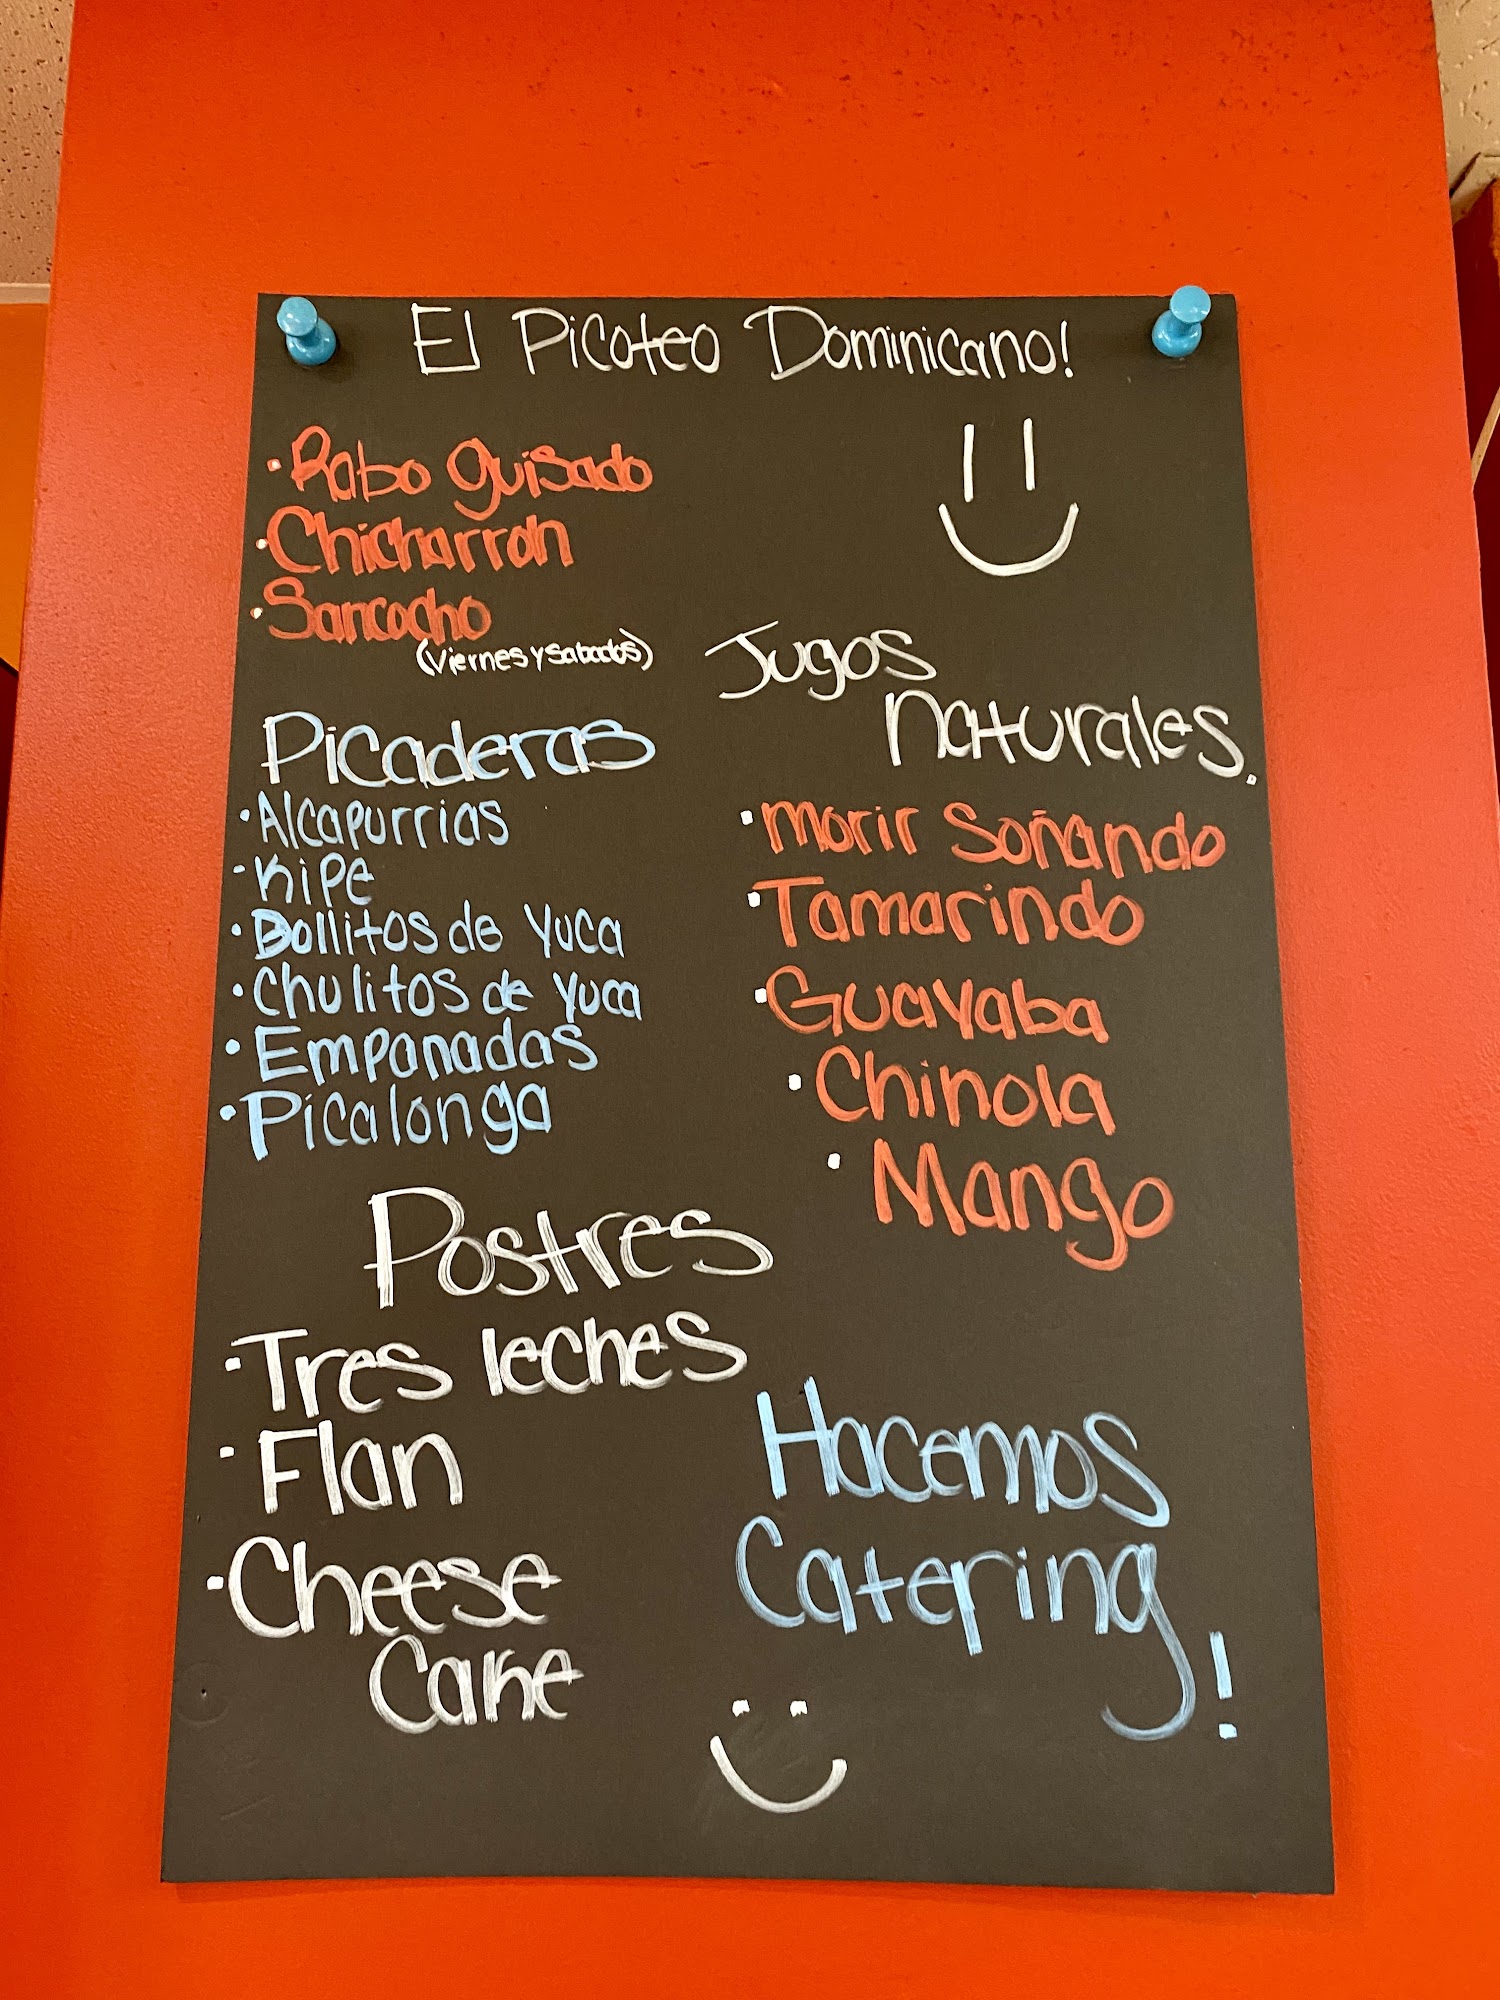 El Picoteo Dominicano!
• Rabo guisado
• Chicharron
• Sancocho
(Viernes y Sabados)
Picaderas
• Alcapurrias
• Kipe
• Bollitos de Yuca
• Chulitos de Yuca
• Empanadas
• Picalonga
Jugos
Naturales.
• Morir Soñando
• Tamarindo
• Guayaba
• Chinola
• Mango
Postres
• Tres leches
• Flan
• Cheese
Cake
Hacemos
Catering!